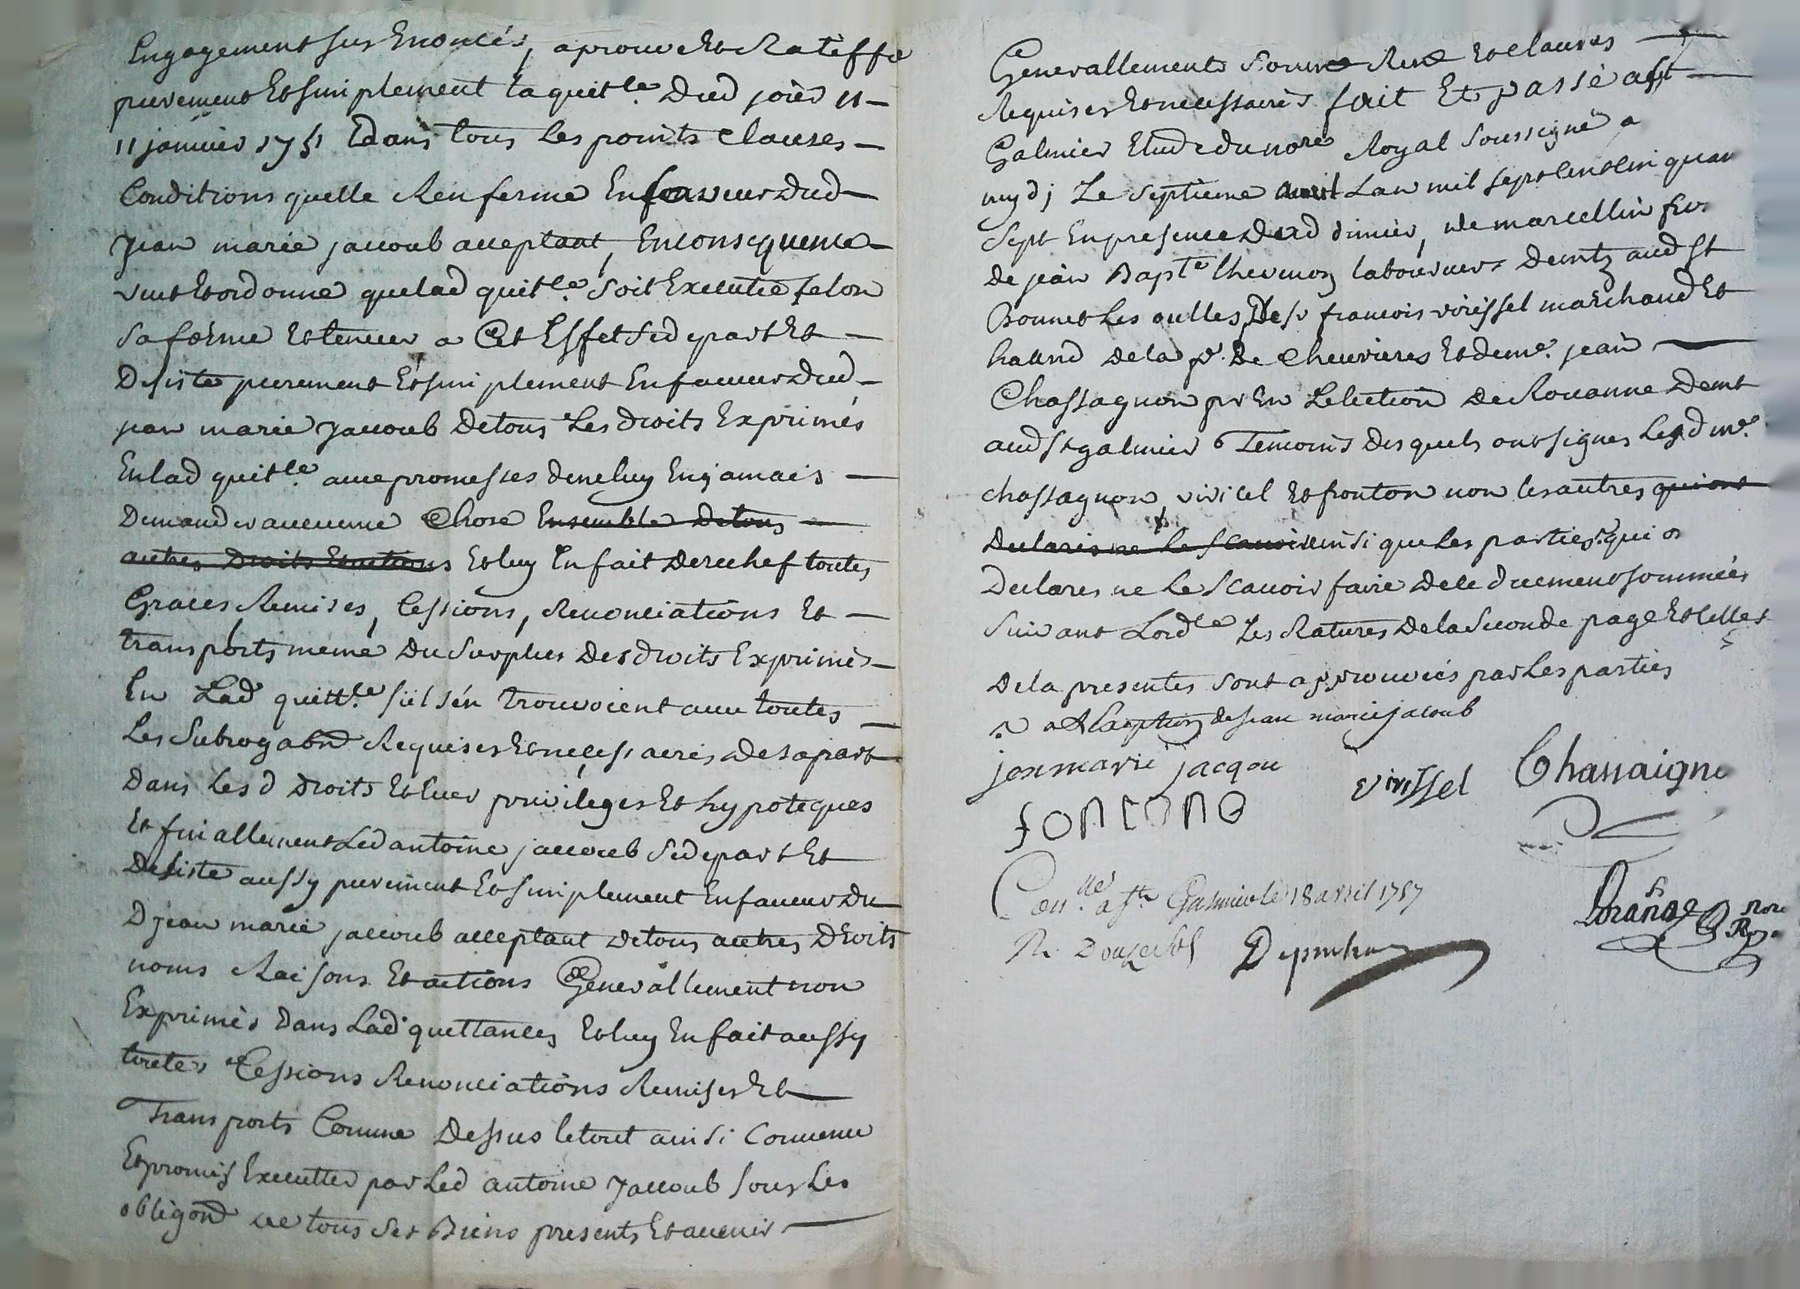 Engagement sus Enoncés, aprouve Et Ratiffe
purement Et simplement la quitle. Dud jour
11 janvier 1751 Edans tous les points Clauses
Conditions quelle Renferme En faveur dud
Jean marie jacoub acceptant, En consequence
veut Et ordonne quelad quitle. soit Executée selon
sa forme Et teneur a Cet Effet se depart Et
Desiste purement Et simplement En faveur dud
jean marie jacoub De tous Les Droits Exprimés
En lad quitle. avec promesses de ne luy En jamais
Demander aucune Chose Ensemble De tous
autres Droits Et actions Et luy En fait Derechef toutes
Graces Remises, Cessions, Renonciations Et
transports meme Du Surplus Des droits Exprimés
En Lad quittle. s'il s'en trouvoient avec toutes
Les Subrogaōns Requises Et necessaires de sa part
Dans Les d Droits Et Leur privileges Et hypoteques
Et finallement Led antoine jacoub se depart Et
Desiste aussy purement Et simplement En faveur Du
D jean marie jacoub acceptant De tous autres Droits
noms Raisons Et actions Generallement non
Exprimés dans Lad quittances Et luy En fait aussy
toutes Cessions Renonciations Remises Et
Transports Comme Dessus le tout ainsi Convenu
Et promis Executter par Led antoine Jacoub sous Les
obligaōn de tous ses Biens presents Et avenir
Generallement Et clauses
Requises Et necessaires fait Et passé a st
Galmier Etude du nore Royal soussigné a
mydj Le septieme avril Lan mil sept cent cinquante
sept En presence dud dimier, de marcellin fils
de jean Bapte. laboureur demt aud st
Bonnet Les oulles, De sr francois virissel marchand Et
De la pr. De Chevrieres Et de me. jean
Chassagnon pr En Lelection De Rouanne Demt
aud st galmier Temoins Desquels ont signés Lesd me.
chassagnon virissel Et fonton non les autres qui ont
Declarés ne le scavoir ainsi que Les parties qui o
Declares ne Le scavoir faire de ce duement sommées
Suivant Lordce Les Ratures De la Seconde page Et celles
De la presentes sont approuvées par Les parties
a Lexception de jean marie jacoub
jan marie jacqou
virissel Chassaigno
fontono
Con.lle a st Galmier le 18 avril 1757
R. Douze sols